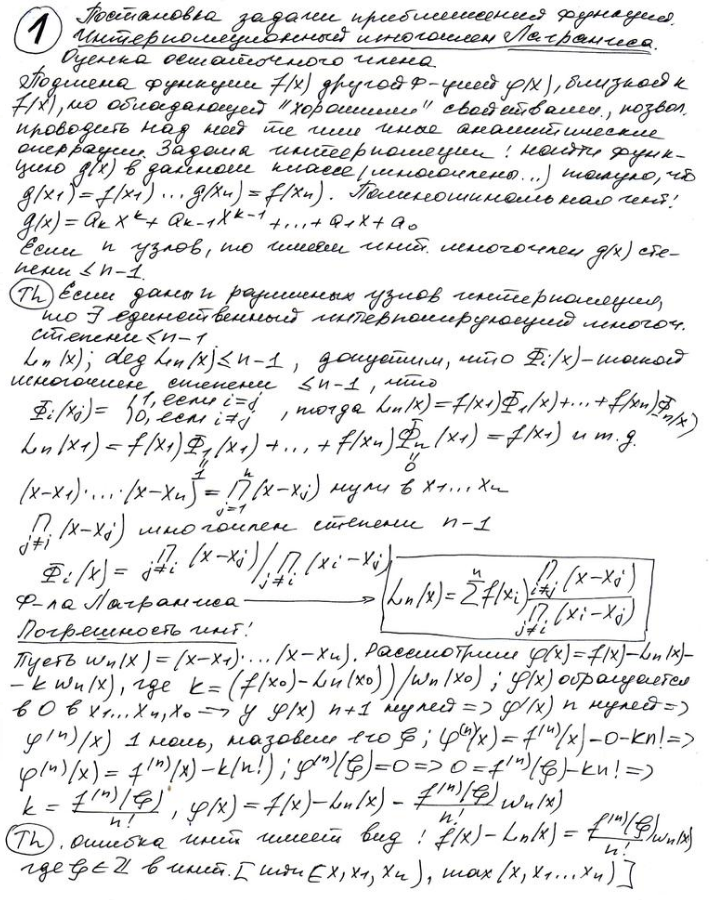 1 Постановка задачи приближения функций.
Интерполяционный многочлен Лагранжа.
Оценка остаточного члена
Подмена функции f(x) другой ф-цией φ(x), близкой к
f(x), но обладающей "хорошими" свойствами, позвол.
проводить над ней те или иные аналитические
операции. Задача интерполяции: найти функ-
цию g(x) в данном классе (многочлены...) такую, что
g(x₁)=f(x₁) ... g(xₙ)=f(xₙ). Полиномиальная инт:
g(x)=aₖxᵏ+aₖ₋₁xᵏ⁻¹+...+a₁x+a₀
Если n узлов, то имеем инт. многочлен g(x) сте-
пени ≤n-1.
Th Если даны n различных узлов интерполяции,
то ∃ единственный интерполирующий многоч.
степени ≤n-1
Lₙ(x); deg Lₙ(x)≤n-1, допустим, что Φᵢ(x)-такой
многочлен степени ≤n-1, что
Φᵢ(xⱼ)= {1, если i=j 0, если i≠j, тогда Lₙ(x)=f(x₁)Φ₁(x)+...+f(xₙ)Φₙ(x)
Lₙ(x₁)=f(x₁)Φ₁(x₁)+...+f(xₙ)Φₙ(x₁)=f(x₁) и т.д.
" 1 " 0
(x-x₁)·...·(x-xₙ)=∏ⱼ₌₁ⁿ(x-xⱼ) нули в x₁...xₙ
∏ⱼ≠ᵢ(x-xⱼ) многочлен степени n-1
Φᵢ(x)= ∏ⱼ≠ᵢ(x-xⱼ)/∏ⱼ≠ᵢ(xᵢ-xⱼ)
Ф-ла Лагранжа → Lₙ(x)=∑ⁿf(xᵢ) ∏ᵢ≠ⱼ(x-xⱼ) / ∏ⱼ≠ᵢ(xᵢ-xⱼ)
Погрешность инт:
Пусть wₙ(x)=(x-x₁)·...·(x-xₙ). Рассмотрим φ(x)=f(x)-Lₙ(x)-
-kwₙ(x), где k=(f(x₀)-Lₙ(x₀))/wₙ(x₀); φ(x) обращается
в 0 в x₁...xₙ,x₀ => у φ(x) n+1 нулей => φ'(x) n нулей =>
φ⁽ⁿ⁾(x) 1 ноль, назовем его ξ; φ⁽ⁿ⁾(x)=f⁽ⁿ⁾(x)-0-kn! =>
φ⁽ⁿ⁾(x)=f⁽ⁿ⁾(x)-k(n!); φ⁽ⁿ⁾(ξ)=0 => 0=f⁽ⁿ⁾(ξ)-kn! =>
k= f⁽ⁿ⁾(ξ)/n!, φ(x)=f(x)-Lₙ(x)- f⁽ⁿ⁾(ξ)/n! wₙ(x)
Th. ошибка инт имеет вид: f(x)-Lₙ(x)= f⁽ⁿ⁾(ξ)/n! wₙ(x)
где ξ∈ℤ в инт. [min(x,x₁,xₙ), max(x,x₁...xₙ)]